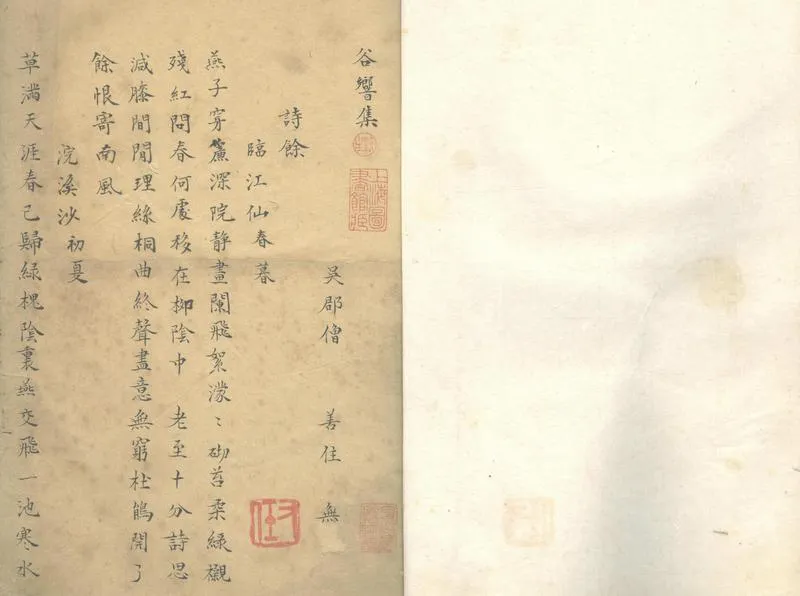 谷響集
上海圖書館藏
吳郡僧 善住 無
詩餘
臨江仙春暮
燕子穿簾深院静晝闌飛絮濛〻砌苔柔綠襯
殘紅問春何處移在柳陰中 老至十分詩思
減膝間閒理絲桐曲終聲盡意無窮杜鵑開了
餘恨寄南風
浣溪沙初夏
草满天涯春已歸綠槐陰裏燕交飛一池寒水